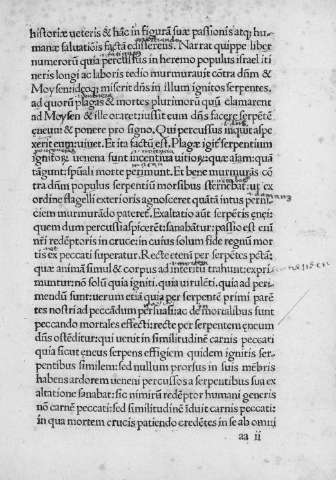 historiæ ueteris & hāc in figurā suæ passionis atq; hu⸗
manæ saluatiōis factā edissereus. Narrat quippe liber
numerorū quia percussus in heremo populus israel iti
neris longi ac laboris tedio murmurauit cōtra dñm &
Moysen: ideoq; miserit dñs in illum ignitos serpentes,
ad quorū plagas & mortes plurimorū quū clamarent
ad Moysen & ille oraret: iussit eum dñs facere serpētē
ęneum & ponere pro signo. Qui percussus inquit aspe
xerit eum: uiuet. Et ita factū est. Plagæ igit serpentium
ignitoꝝ uenena sunt incentiua uitioꝝ: quæ aīam: quā
tāgunt: spūali morte perimunt. Et bene murmurās cō
tra dñm populus serpentiū morsibus sternebat: ut ex
ordine flagelli exterioris agnosceret quātā intus perni⸗
ciem murmurādo pateret. Exaltatio aūt serpētis enei:
quem dum percussi aspicerēt: sanabātur: passio est
nr̄i redēptoris in cruce: in cuius solum fide regnū mor
tis ex peccati superatur. Recte eteni per serpētes pctā:
quæ animā simul & corpus ad interitū trahunt: expri
muntur: nō solū quia igniti. quia uirulēti. quia ad peri⸗
mendū sunt: uerum etiā quia per serpentē primi parē
tes nostri ad peccādum persuasi: ac de īmortalibus sunt
peccando mortales effecti: recte per serpentem eneum
dñs ostēditur: qui uenit in similitudinē carnis peccati
quia sicut ęneus serpens effigiem quidem ignitis ser⸗
pentibus similem: sed nullum prorsus in suis mēbris
habens ardorem ueneni percussos a serpentibus sua ex
altatione sanabat: sic nimirū redēptor humani generis
nō carnē peccati: sed similitudinē īduit carnis peccati:
in qua mortem crucis patiendo credētes in se ab omni
aa ii